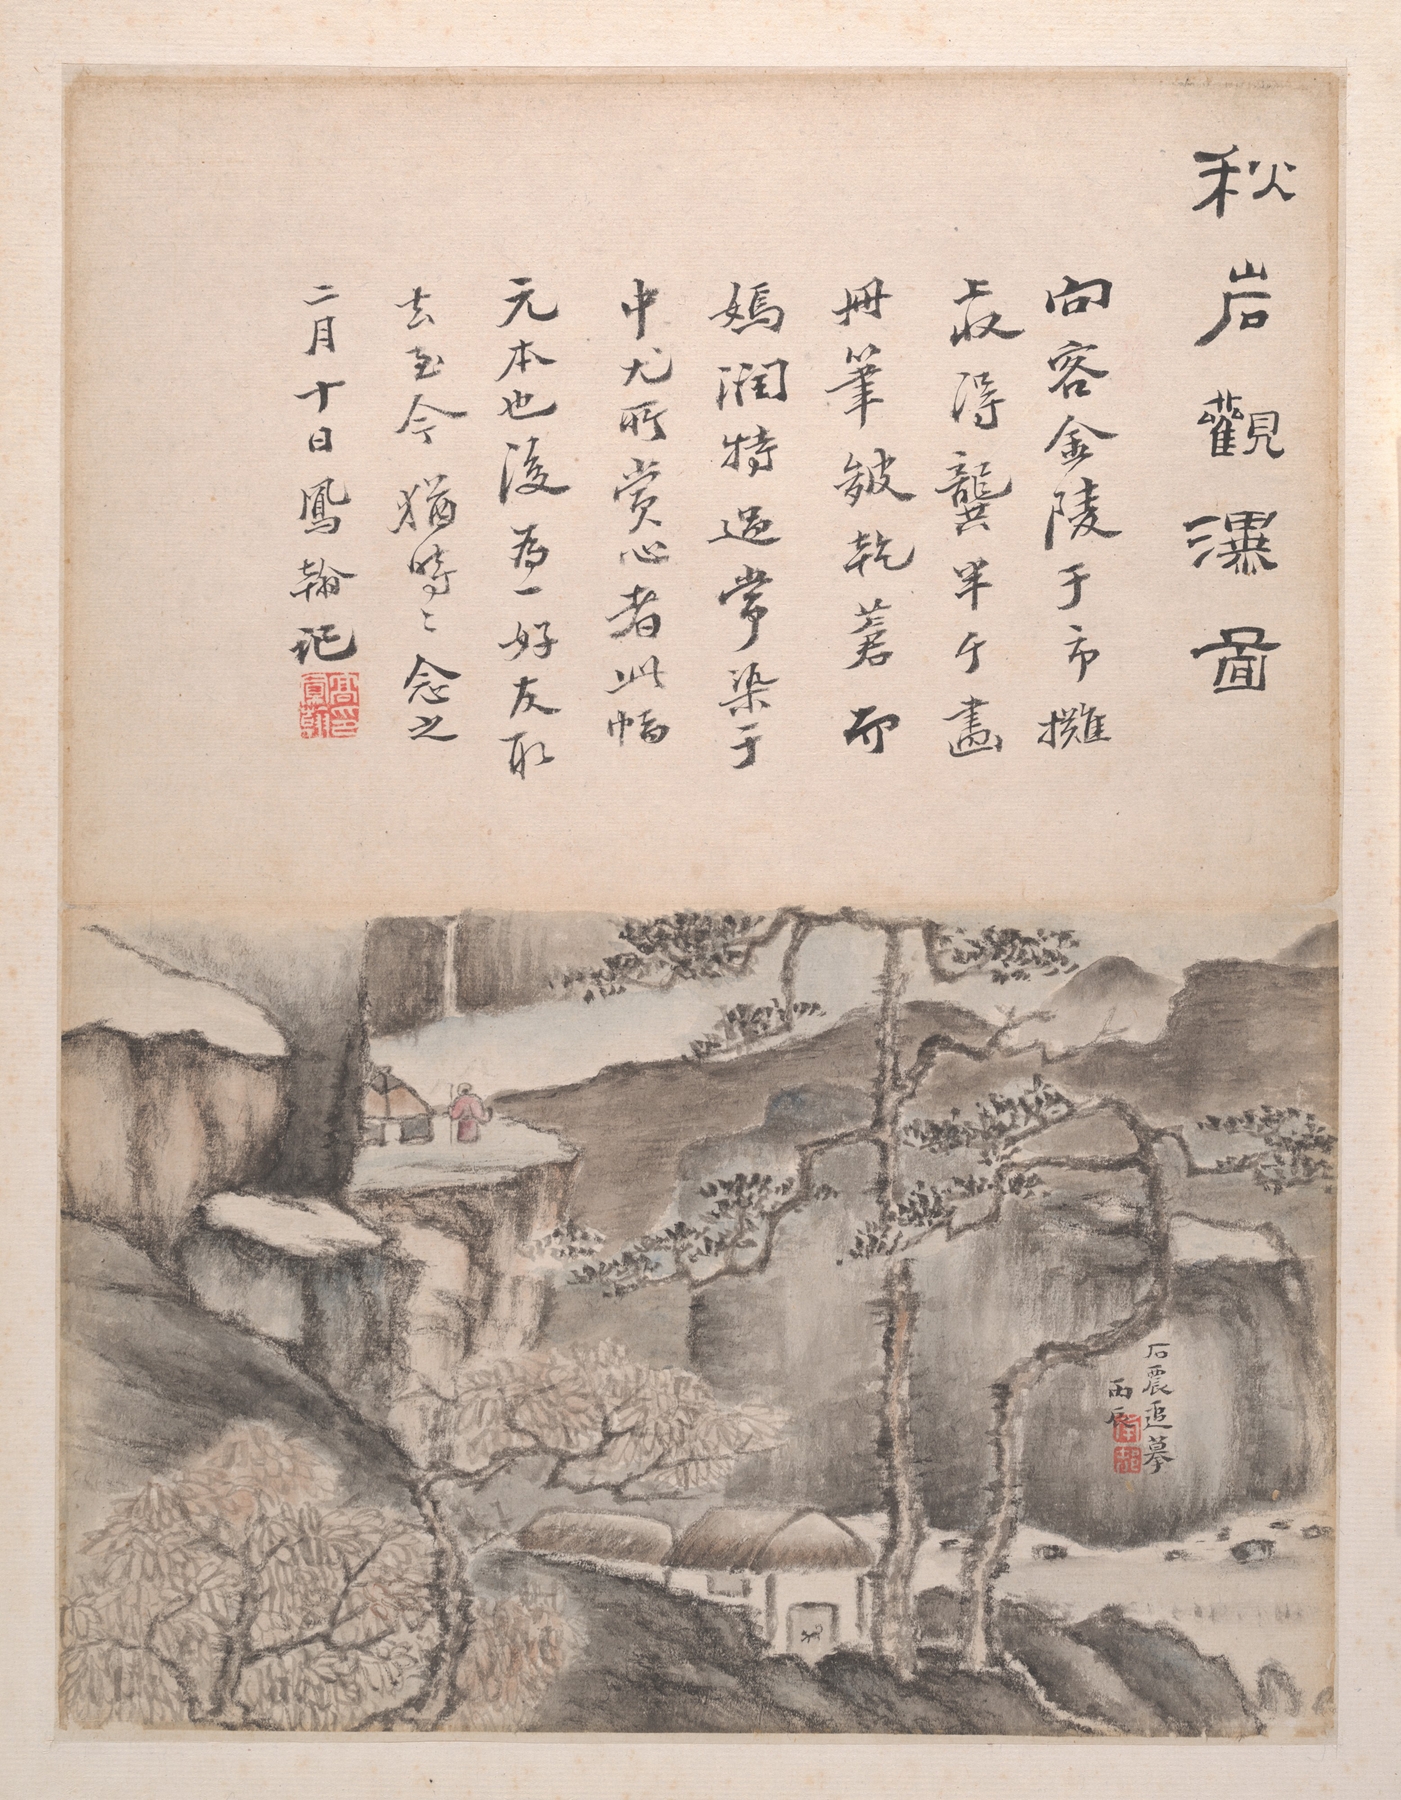 秋岩觀瀑圖
向客金陵于市攤
上收得龔半千畫
冊筆皴乾蒼而
嫣潤特過常染于
中尤所賞心者此幅
元本也後為一好友取
去至今猶時〻念之
二月十日鳳翰記
高鳳翰印
石震追摹
丙辰